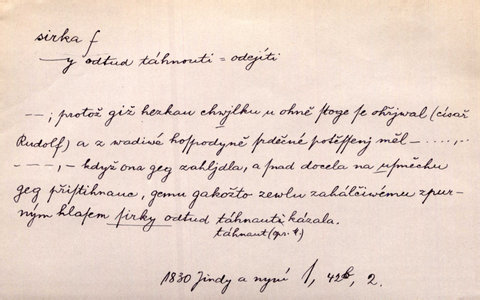 sirka f
—y odtud táhnouti = odejíti
— —; protož giž hezkau chwjlku u ohně stoge se ohřjwal (císař
Rudolf) a z wadiwé hospodyně srdečné potěssenj měl — . . . . , . –
— — —, – když ona geg zahljdla, a snad docela na usměchu
geg přistihnauc, gemu gakožto zewlu zahálčiwému zpur-
ným hlasem sirky odtud táhnauti kázala.
táhnaut (opr. 4.)
1830 Jindy a nynj 1, 42b, 2.